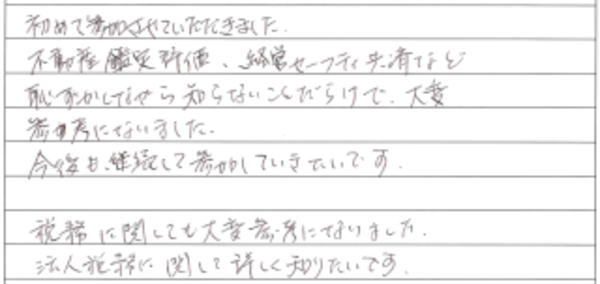 初めて参加させていただきました.
不動産鑑定評価、経営セーフティ共済など
恥ずかしながら知らないことだらけで、大変
参考になりました.
今後も、継続して参加していきたいです.
税務に関しても大変参考になりました.
法人税務に関して詳しく知りたいです.